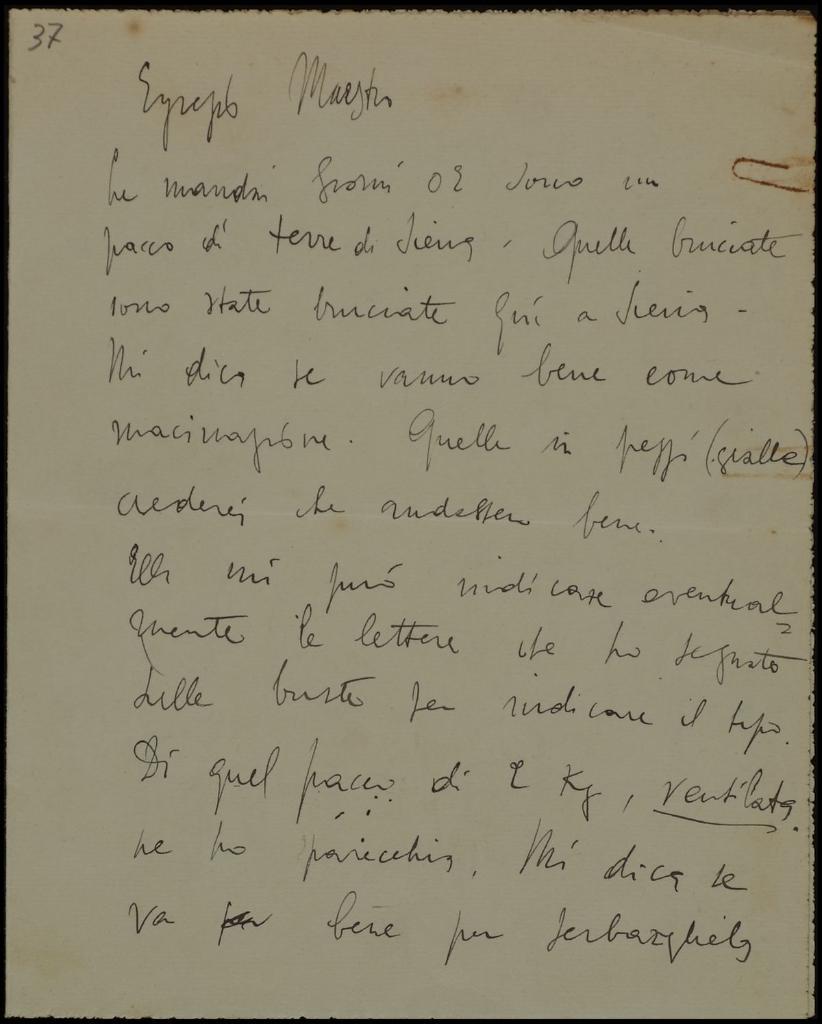 37
Egregio Maestro
Le mandai giorni or sono un
pacco di terre di Siena. Quelle bruciate
sono state bruciate qui a Siena -
Mi dica se vanno bene come
macinazione. Quelle in pezzi (gialle)
crederei che andassero bene.
Ella mi può indicare eventual=
mente le lettere che ho segnato
sulle buste per indicare il tipo.
Di quel pacco di 2 Kg, ventilata,
ne ho parecchia. Mi dica se
va bene per serbargliela